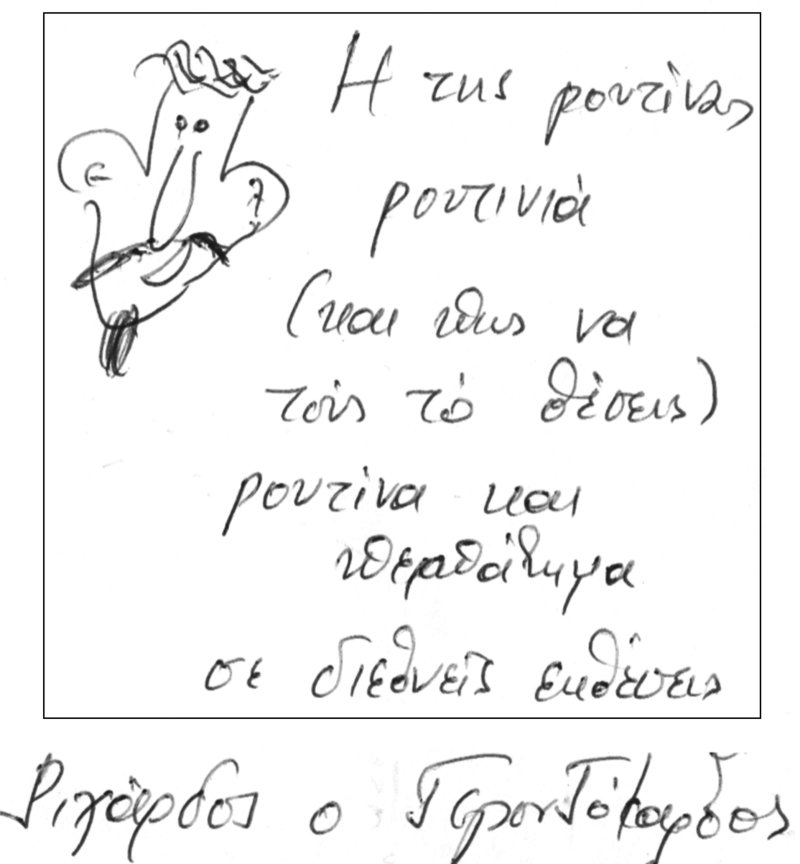 Η της ρουτίνας
ρουτινιά
(και πως να
τούς τό θέσεις)
ρουτίνα και
περαπάτημα
σε διεθνείς εκθέσεις
Ριχάρδος ο Γεροντόκαρδος